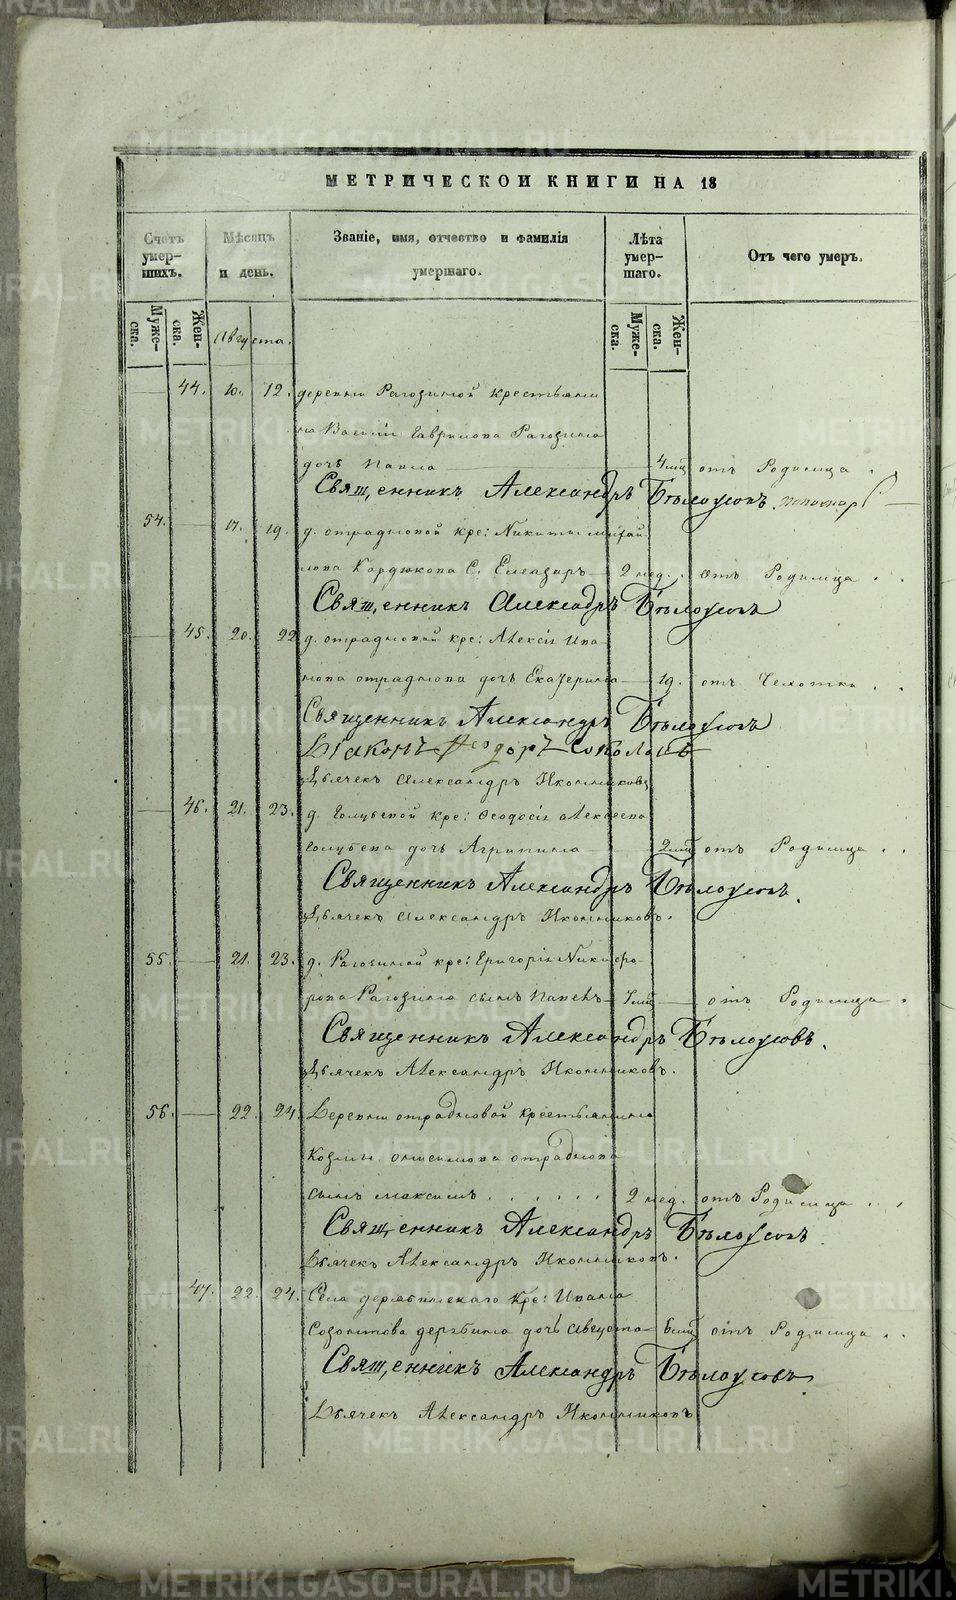 МЕТРИЧЕСКОЙ КНИГИ НА 18
Счетъ умер-шихъ.
Мѣсяцъ и день.
Званіе, имя, отчество и фамилія умершаго.
Лѣта умер-шаго.
Отъ чего умеръ.
Муже-ска.
Жен-ска.
Августа.
Муже-ска.
Жен-ска.
44. 10. 12. деревни Рагозиной крестьяни
на Василія Гаврилова Рагозина
дочь 4 мѣс отъ Родимца
Священникъ Александръ Бѣлоусовъ
54. 17. 19. д. отрадновой кре: Никиты Михай
лова С. Елеазаръ 2 нед. отъ Родимца
Священникъ Александръ Бѣлоусовъ
45. 20. 22 д. отрадновой кре: Алексія Ива
нова отраднова дочь Екатерина 1 г. отъ Чахотки
Священникъ Александръ Бѣлоусовъ
Діаконъ Ѳеодоръ Соколовъ
Дьячекъ Александръ Иконниковъ
46. 21. 23. д. Голубевой кре: Ѳеодосія Алексеева
Голубева дочь Агрипина 2 мѣс отъ Родимца
Священникъ Александръ Бѣлоусовъ.
Дьячекъ Александръ Иконниковъ.
55. 21. 23. д. Рагозиной кре: Григорія Никифо
рова Рагозина сынъ Павелъ мѣс отъ Родимца
Священникъ Александръ Бѣлоусовъ.
Дьячекъ Александръ Иконниковъ.
56. 22. 24. Деревни отрадновой крестьянина
Козмы онисимова отраднова
сынъ максимъ 2 нед. отъ Родимца
Священникъ Александръ Бѣлоусовъ
Дьячекъ Александръ Иконниковъ.
47. 22. 24. Села дерябинскаго кре: Ивана
Созонтова дерябина дочь Августа 6 мѣс отъ Родимца
Священникъ Александръ Бѣлоусовъ
Дьячекъ Александръ Иконниковъ
METRIKI.GASO-URAL.RU